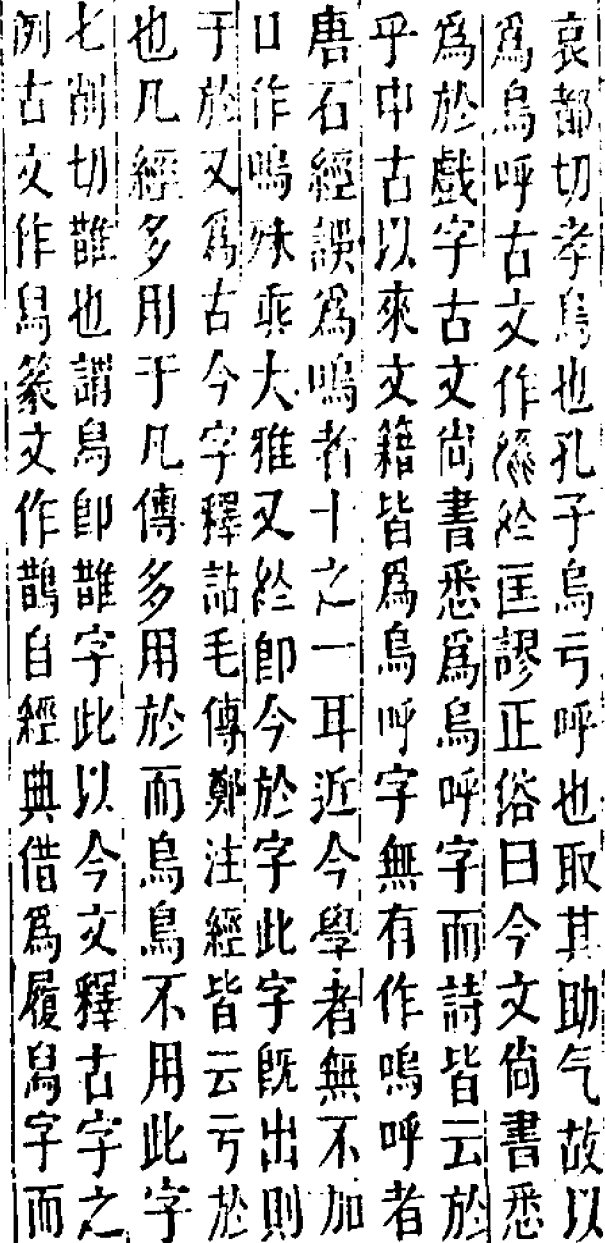 哀都切孝烏也孔子烏亏呼也取其助气故以
爲烏呼古文作𦀂於匡謬正俗曰今文尙書悉
爲於戲字古文尙書悉爲烏呼字而詩皆云於
乎中古以來文籍皆爲烏呼字無有作嗚呼者
唐石經誤爲嗚者十之一耳近今學者無不加
口作嗚殊乖大雅又於卽今於字此字旣出則
于於又爲古今字釋詁毛傳鄭注經皆云亏於
也凡經多用于凡傳多用於而烏鳥不用此字
七削切誰也謂舄卽誰字此以今文釋古字之
例古文作舄篆文作鵲自經典借爲履舄字而